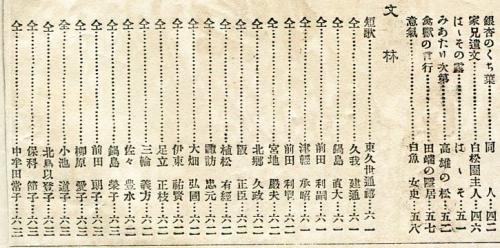 銀杏のくち葉………同人…四二
家兄遺文………白松園主人…四六
はゝその露………はゝそ…五一
みあたり次第………高雄の松…五二
禽獸の言行………田端の隱居…五七
意氣………白魚女史…五八
文林
短歌………東久世通禧…六一
仝………久我建通…六一
仝………鍋島直大…六一
仝………前田利嗣…六一
仝………津輕承昭…六一
仝………前田利鬯…六一
仝………宮地嚴夫…六一
仝………北郷久政…六一
仝………阪正臣…六二
仝………植松有經…六二
仝………諏訪忠元…六二
仝………大畑弘國…六二
仝………伊東祐賢…六二
仝………足立正枝…六二
仝………三輪義方…六二
仝………佐々豊水…六二
仝………鍋島榮子…六三
仝………前田朗子…六三
仝………柳原愛子…六三
仝………小池道子…六三
仝………北畠以登子…六三
仝………保科節子…六三
仝………中牟田常子…六三